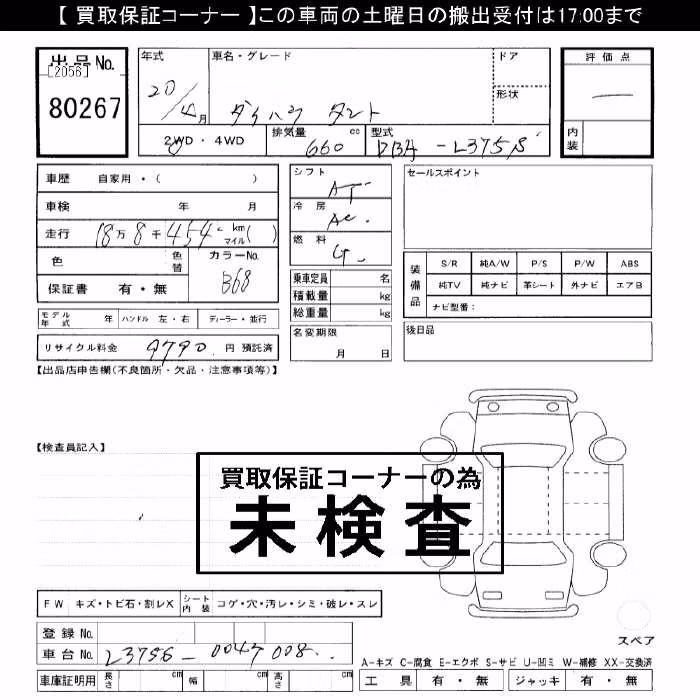 【 買取保証コーナー 】この車両の土曜日の搬出受付は17:00まで
出品No.
[2056]
80267
年式
20/4月
車名・グレード
ダイハツ タント
ドア
形状
評価点
―
内装
2WD・4WD
排気量 660 cc
型式 DBA-L375S
車歴 自家用・( )
車検 年 月
走行 18万8千454 km マイル( )
色
色替
カラーNo. B68
保証書 有・無
シフト AT
冷房 AC
燃料 G
乗車定員 名
積載量 kg
総重量 kg
セールスポイント
装備品
S/R 純A/W P/S P/W ABS
純TV 純ナビ 革シート 外ナビ エアB
ナビ型番:
モデル年式 年 ハンドル 左・右 ディーラー・並行
リサイクル料金 9790 円 預託済
名変期限 月 日
後日品
【出品店申告欄(不良箇所・欠品・注意事項等)】
【検査員記入】
買取保証コーナーの為
未検査
FW キズ・トビ石・割レX シート内装 コゲ・穴・汚レ・シミ・破レ・スレ
登録No.
車台No. L375S-0047008
スペア
A-キズ C-腐食 E-エクボ S-サビ U-凹ミ W-補修 XX-交換済
車庫証明用 長さ cm 幅 cm 高さ cm
工具 有・無 ジャッキ 有・無